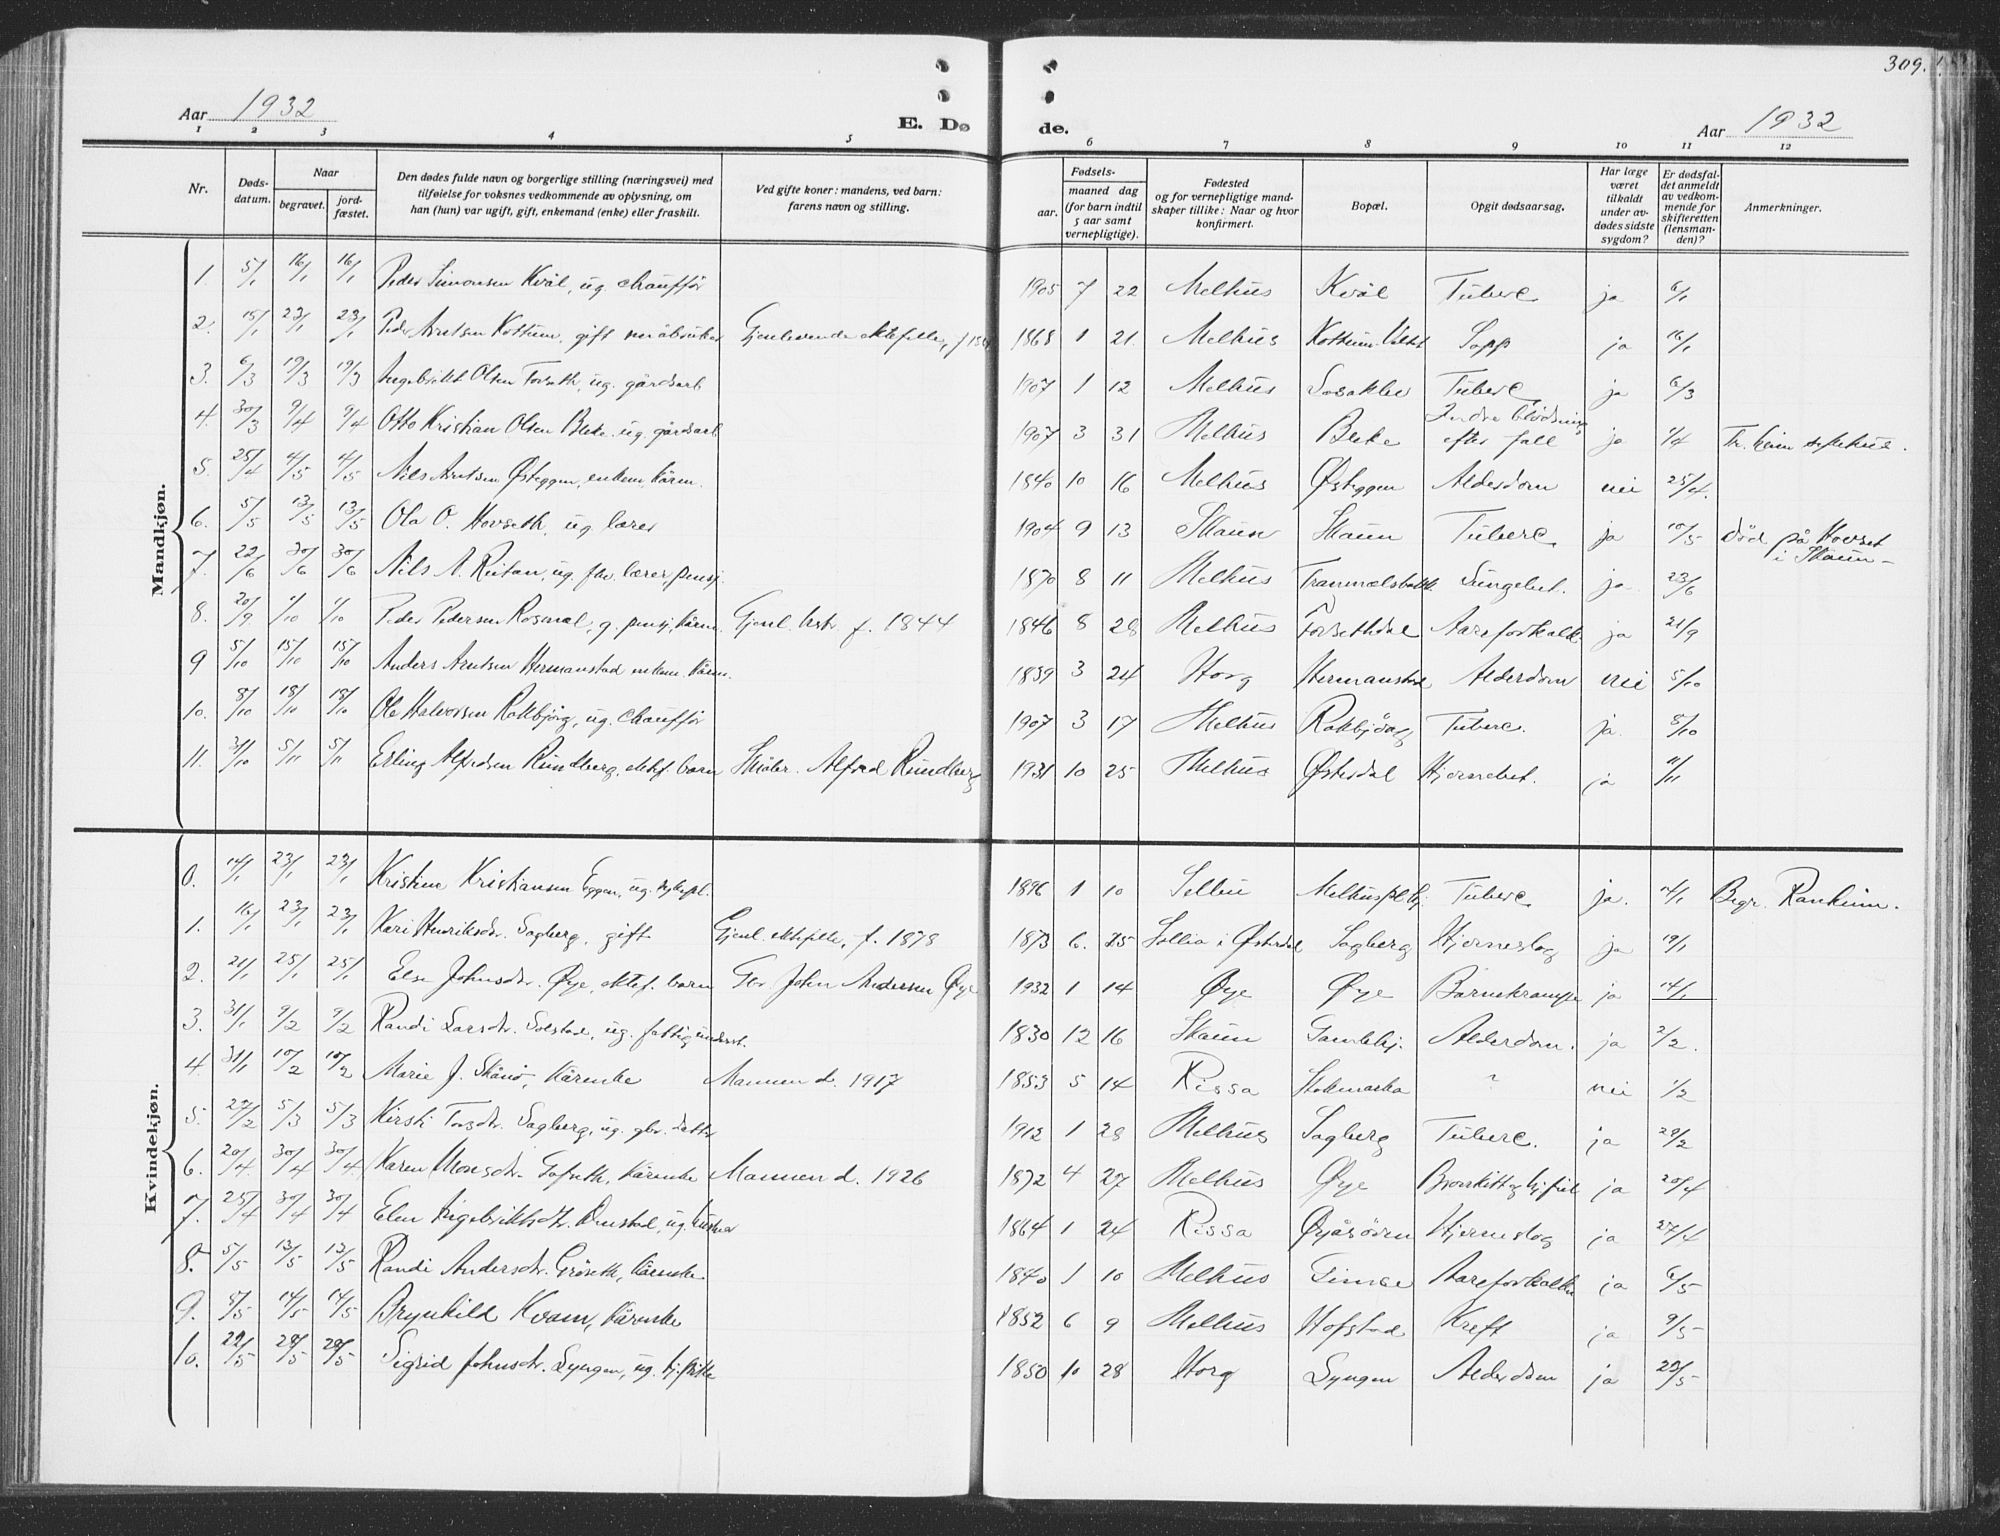 309.
Aar 1932
E. Dø de.
Aar 1932
1 2 3 4 5 6 7 8 9 10 11 12
Nr. Døds-datum. Naar begravet. jord-fæstet. Den dødes fulde navn og borgerlige stilling (næringsvei) med tilføielse for voksnes vedkommende av oplysning, om han (hun) var ugift, gift, enkemand (enke) eller fraskilt. Ved gifte koner: mandens, ved barn: farens navn og stilling. Fødsels- aar. maaned dag (for barn indtil 5 aar samt vernepligtige). Fødested og for vernepligtige mand-skaper tillike: Naar og hvor konfirmert. Bopæl. Opgit dødsaarsag. Har læge været tilkaldt under av-dødes sidste sygdom? Er dødsfal-det anmeldt av vedkom-mende for skifteretten (lensman-den)? Anmerkninger.
Mandkjøn.
1. 5/1 16/1 16/1 Peder Simonsen Kvål, ug. chauffør 1905 7 22 Melhus Kvål Tuberc. ja 6/1
2. 15/1 23/1 23/1 Peder Arntsen Kottum, gift småbruker Gjenlevende ektefelle, f. 1868 1 21 Melhus Kottum ja 16/1
3. 6/3 19/3 19/3 Ingebrikt Olsen Forseth, ug. gårdsarb 1907 1 12 Melhus Tuberc. ja 6/3
4. 30/3 9/4 9/4 Otto Kristian Olsen Bleke, ug. gårdsarb 1907 3 31 Melhus Bleke Indre blødning efter fall ja 1/4
5. 25/4 4/5 4/5 Nils Arntsen Østeggen, enkem., kårm. 1840 10 16 Melhus Østeggen Alderdom nei 25/4.
6. 5/5 13/5 13/5 Ola O. Hovseth, ug. lærer 1904 9 13 Skaun Skaun Tuberc. ja 10/5 Død på Hovset i Skaun -
7. 22/6 30/6 30/6 Nils A. Reitan, ug. fhv. lærer, pensj. 1870 8 11 Melhus Lungebet. ja 23/6
8. 20/9 1/10 1/10 Peder Pedersen Rosmæl, g. pensj. kårm. Gjenl. hstr. f. 1844 1846 8 28 Melhus Forsethdal Aareforkalk. ja 21/9
9 5/10 15/10 15/10 Anders Arntsen Hermanstad enkem. kårm. 1839 3 24 Horg Hermanstad Alderdom nei 5/10
10. 8/10 18/10 18/10 Ole Halvorsen Rokbjørg, ug. chauffør 1907 3 17 Melhus Rokbjørg Tuberc. ja. 8/10
11. 31/10 5/11 5/11 Erling Alfredsen Rundberg, ektef. barn Alfred Rundberg 1931 10 25 Melhus Østerdal Hjernebet. ja 11/11
Kvindekjøn.
0. 14/1 23/1 23/1 Kristine Kristiansen Eggen, ug. sykepl. 1896 1 10 Selbu Tuberc. ja. 14/1 Begr. Ranheim.
1. 16/1 23/1 23/1 Kari Henriksdr. Sagberg, gift Gjenl. ektefelle, f. 1878 1873 6. 25 Sollia i Østerdal Sagberg Hjerneslag ja 19/1
2. 21/1 25/1 25/1 Else Johnsdr. Øye, ektef. barn Gbr. John Andersen Øye 1932 1 14 Øye Øye Barnekrampe ja 14/1
3. 31/1 9/2 9/2 Randi Larsdr. Solstad, ug. fattigunderst. 1830 12 16 Skaun Gamlehj. Alderdom. ja 2/2.
4. 31/1 10/2 10/2 Marie J. Skånø, kårenke Mannen d. 1917 1853 5 14 Rissa ? nei 1/2
5. 27/2 5/3 5/3 Kirsti Torsdr. Sagberg, ug. gbr. datter 1912 1 28 Melhus Sagberg Tuberc. ja 29/2
6. 20/4 30/4 30/4 Karen Monsdr. kårenke Mannen d. 1926 1872 4 27 Melhus Øye ja 20/4
7. 25/4 30/4 30/4 Elen Ingebriktsdr. ug. 1864 1 24 Rissa Øyåsøren Hjerneslag ja 27/4
8. 5/5 13/5 13/5 Randi Andersdr. Grøseth, kårenke 1840 1 10 Melhus Gimse Aareforkalkn ja 6/5
9. 8/5 14/5 14/5 Brynhild Kvam, kårenke 1852 6 9 Melhus Hofstad Kreft ja 9/5
10. 22/5 28/5 28/5 Sigrid Johnsdr. Lyngen, ug. 1850 10 28 Horg Lyngen Alderdom ja 23/5